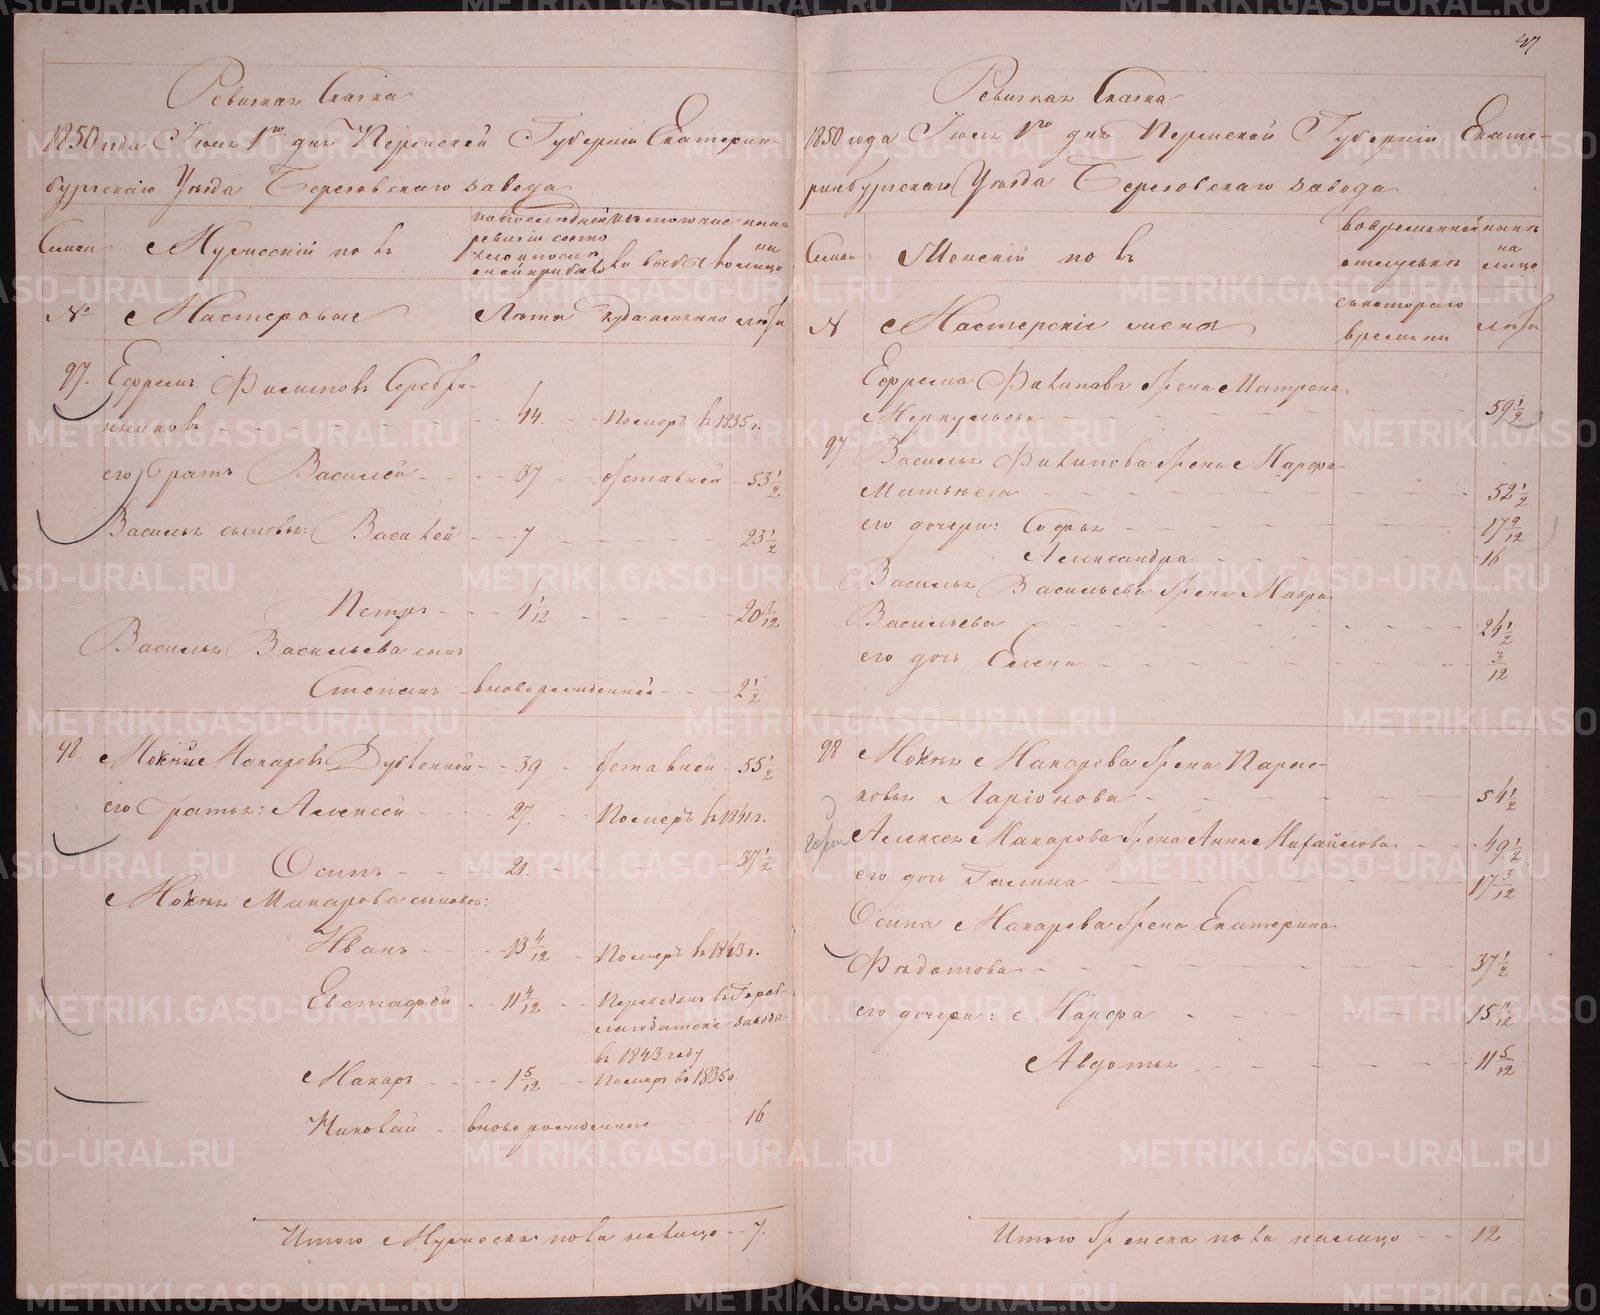 47
Ревизская Сказка
1850 года Июля 1го дня Пермской Губернiи Екатерин-
бургскаго Уезда Березовскаго завода
Семьи
Мужескiй полъ
по последней
ревизiи состо
яло и после
оной прибыло
изъ того числа
выбыло
ныне
на
лицо
№
Мастеровые
Лета
когда именно
лета
97.
Ефремъ Филиповъ Серебре-
нниковъ - - 44 - - Померъ в 1835 г.
его братъ Василей - - 37 - - отставной - 53 1/2
Василья сыновья: Василей - - 7 - - 23 1/2
Петръ - - 4 1/12 - - 20 7/12
Василья Васильева сынъ
Степанъ - вновь рожденной - - 2 1/2
98.
Мокей Макаровъ - - 39 - отставной - 55 1/2
его братья: Алексей - - 27. - Померъ в 1841 г.
Осипъ - - 21. - - 37 1/2
Мокея Макарова сыновья:
Иванъ - - 13 4/12 - Померъ в 1843 г.
Евстафей - - 11 4/12 - - Переведенъ в Гороб-
лагодатскiе заводы
в 1843 году
Макаръ - - 1 5/12 - - Померъ в 1835 г.
Николай - вновь рожденные - - 16
Итого Мужеска пола налицо - - 7.
Ревизская Сказка
1850 года Июля 1го дня Пермской Губернiи Екате-
ринбургскаго Уезда Березовскаго завода
Семьи
Женскiй полъ
во временной
отлучке
ныне
на
лицо
N
Мастерскiе жены
с котораго
времени
лета
Ефрема Филипова жена Матрена
Меркульева - - 59 1/2
97
Василья Филипова жена Марфа
Матвеева - - 52 1/2
его дочери: Софья - - 17 9/12
Александра - - 16
Василья Васильева жена Мавра
Васильева - - 24 1/2
его дочь Елена - - 3/12
98
Мокея Макарова жена Парас-
ковья Ларiонова - - 54 1/2
Алексея Макарова жена Анна Михайлова - - 49 1/2
его дочь Галина - - 17 3/12
Осипа Макарова жена Екатерина
Федотова - - 37 1/2
его дочери: Марфа - - 15 11/12
Авдотья - - 11 5/12
Итого женска пола налицо - - 12
METRIKI.GASO-URAL.RU